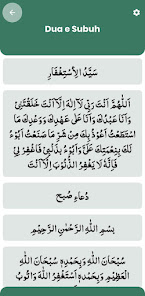 Dua e Subuh
سَيِّدُ الْاِسْتِغْفَارِ
اَللّٰهُمَّ اَنْتَ رَبِّيْ لَآ اِلٰهَ اِلَّآ اَنْتَ خَلَقْتَنِيْ
وَاَنَا عَبْدُكَ وَاَنَا عَلٰى عَهْدِكَ وَوَعْدِكَ مَا
اسْتَطَعْتُ اَعُوْذُ بِكَ مِنْ شَرِّ مَا صَنَعْتُ اَبُوْءُ
لَكَ بِنِعْمَتِكَ عَلَيَّ وَاَبُوْءُ بِذَنْبِيْ فَاغْفِرْ لِيْ
فَاِنَّهٗ لَا يَغْفِرُ الذُّنُوْبَ اِلَّآ اَنْتَ
دُعَاءِ صُبح
بِسْمِ اللّٰهِ الرَّحْمٰنِ الرَّحِيْمِ
سُبْحَانَ اللّٰهِ وَبِحَمْدِهٖ سُبْحَانَ اللّٰهِ
الْعَظِيْمِ وَبِحَمْدِهٖ اَسْتَغْفِرُ اللّٰهَ وَاَتُوْبُ